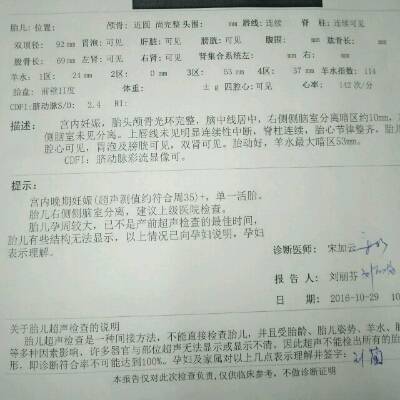 胎儿: 位置: 颅骨: 近圆 尚完整 头围: mm 唇线: 连续 脊 柱: 连续可见
双顶径: 92 mm 胃泡: 可见 肝脏: 可见 膀胱: 可见 腹围: mm 肱骨长:
股骨长: 69 mm 左肾: 可见 右肾: 可见 肾集合系统左: mm 右: mm
羊水: 1区: 24 mm 2区: 0 mm 3区: 53 mm 4区: 37 mm 羊水指数: 114
胎盘: 前壁II度 体重: ± g 四腔心: 可见 心率: 142 次/分
CDFI: 脐动脉S/D: 2.4 RI:
描述: 宫内妊娠, 胎头颅骨光环完整, 脑中线居中, 右侧侧脑室分离暗区约10mm,
侧脑室未见分离。上唇线未见明显连续性中断, 脊柱连续, 胎心节律整齐, 胎儿
腔心可见, 胃泡及膀胱可见, 双肾可见。胎动好, 羊水最大暗区53mm。
CDFI: 脐动脉彩流显像可。
提示:
宫内晚期妊娠(超声测值约符合周35)+, 单一活胎。
胎儿右侧侧脑室分离, 建议上级医院检查。
胎儿孕周较大, 已不是产前超声检查的最佳时间,
胎儿有些结构无法显示, 以上情况已向孕妇说明, 孕妇
表示理解。
诊断医师: 宋加云
报 告 人: 刘丽芬
日 期: 2016-10-29 10
关于胎儿超声检查的说明
胎儿超声检查是一种间接方法, 不能直接检查胎儿, 并且受胎龄、胎儿姿势、羊水、
等多种因素影响, 许多器官与部位超声无法显示或显示不清, 因此超声不能检出所有的胎
形, 即诊断符合率不可能达到100%。孕妇及家属对以上几点表示理解并签字:
本报告仅对此次检查负责, 仅供临床参考, 不做诊断证明